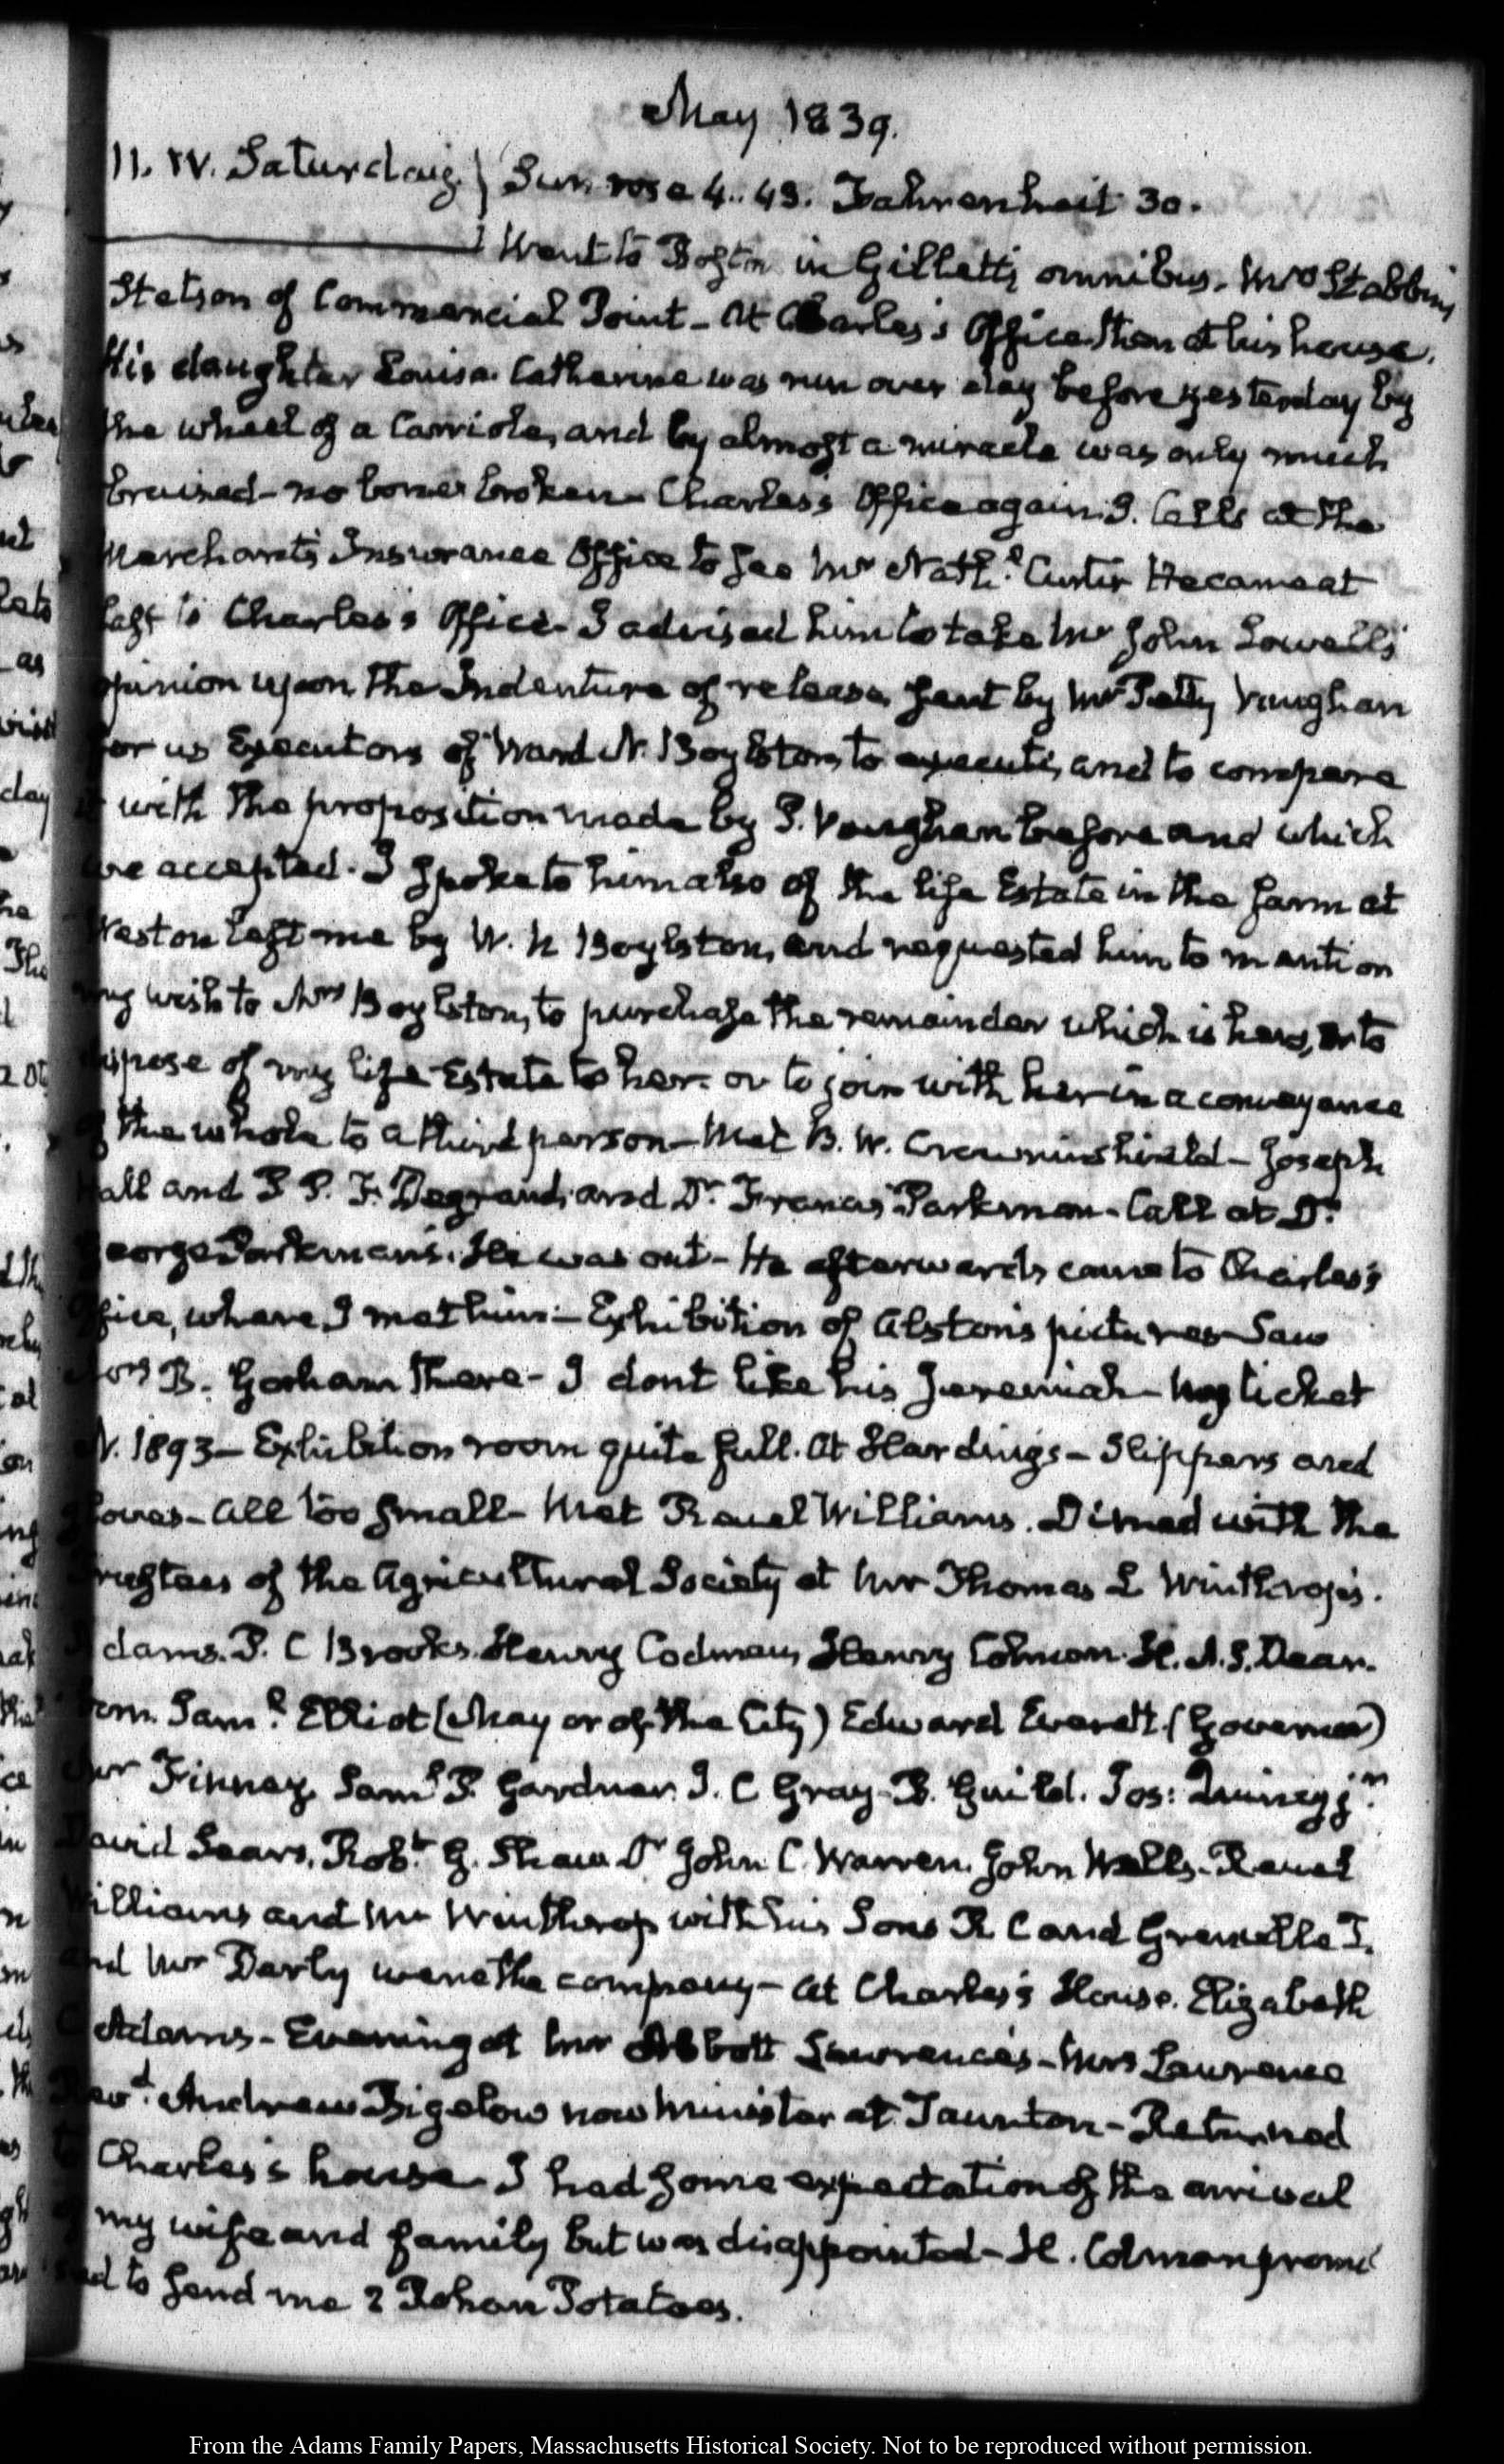 May 1839.
11. IV. Saturday. } Sun rose 4..43. Fahrenheit 30.
Went to Boston in Gillett's omnibus. Mrs Stebbins
Stetson of Commercial Point — At Charles's Office then at his house.
His daughter Louisa Catherine was run over day before yesterday by
the wheel of a Carriole, and by almost a miracle was only much
bruised — no bones broken — Charles's Office again. I. Calls at the
Merchants Insurance Office to see Mr Nathl. Curtis He came at
last to Charles's Office — I advised him to take Mr John Lowell's
opinion upon the Indenture of release sent by Mr Petty Vaughan
for us Executors of Ward N. Boylston, to execute, and to compare
it with the proposition made by P. Vaughan before and which
we accepted. I spoke to him also of the life Estate in the farm at
Weston left me by W. N Boylston, and requested him to mention
my wish to Mrs Boylston, to purchase the remainder which is hers, or to
dispose of my life Estate to her. or to join with her in a conveyance
of the whole to a third person — Met B. W. Crowninshield — Joseph
Hall and P P. F. Degrand, and Dr. Francis Parkman. Call at Dr.
George Parkman's. He was out — He afterwards came to Charles's
Office, where I met him — Exhibition of Alston's pictures — Saw
Mrs B. Gorham there — I dont like his Jeremiah — My ticket
N. 1893 — Exhibition room quite full. At Harding's — Slippers and
gloves — All too small — Met Reuel Williams. Dined with the
Trustees of the Agricultural Society at Mr Thomas L Winthrop's.
Adams. P. C Brooks. Henry Codman, Henry Colman. H. A. S. Dear-
born. Saml. Elliot (Mayor of the City) Edward Everett. (Governor)
Mr Finney, Saml P. Gardner. J. C Gray. B. Guild. Jos: Quincy jr.
David Sears, Robt. G. Shaw. Dr John C. Warren. John Wells. Reuel
Williams and Mr Winthrop with his Sons R C and Grenville T.
and Mr Darly were the company — At Charles's House. Elizabeth
C Adams — Evening at Mr Abbott Lawrence's — Mrs Lawrence
Revd. Andrew Bigelow now Minister at Taunton — Returned
to Charles's house — I had some expectation of the arrival
of my wife and family but was disappointed — H. Colman promi-
sed to send me 2 Rohan Potatoes.
From the Adams Family Papers, Massachusetts Historical Society. Not to be reproduced without permission.